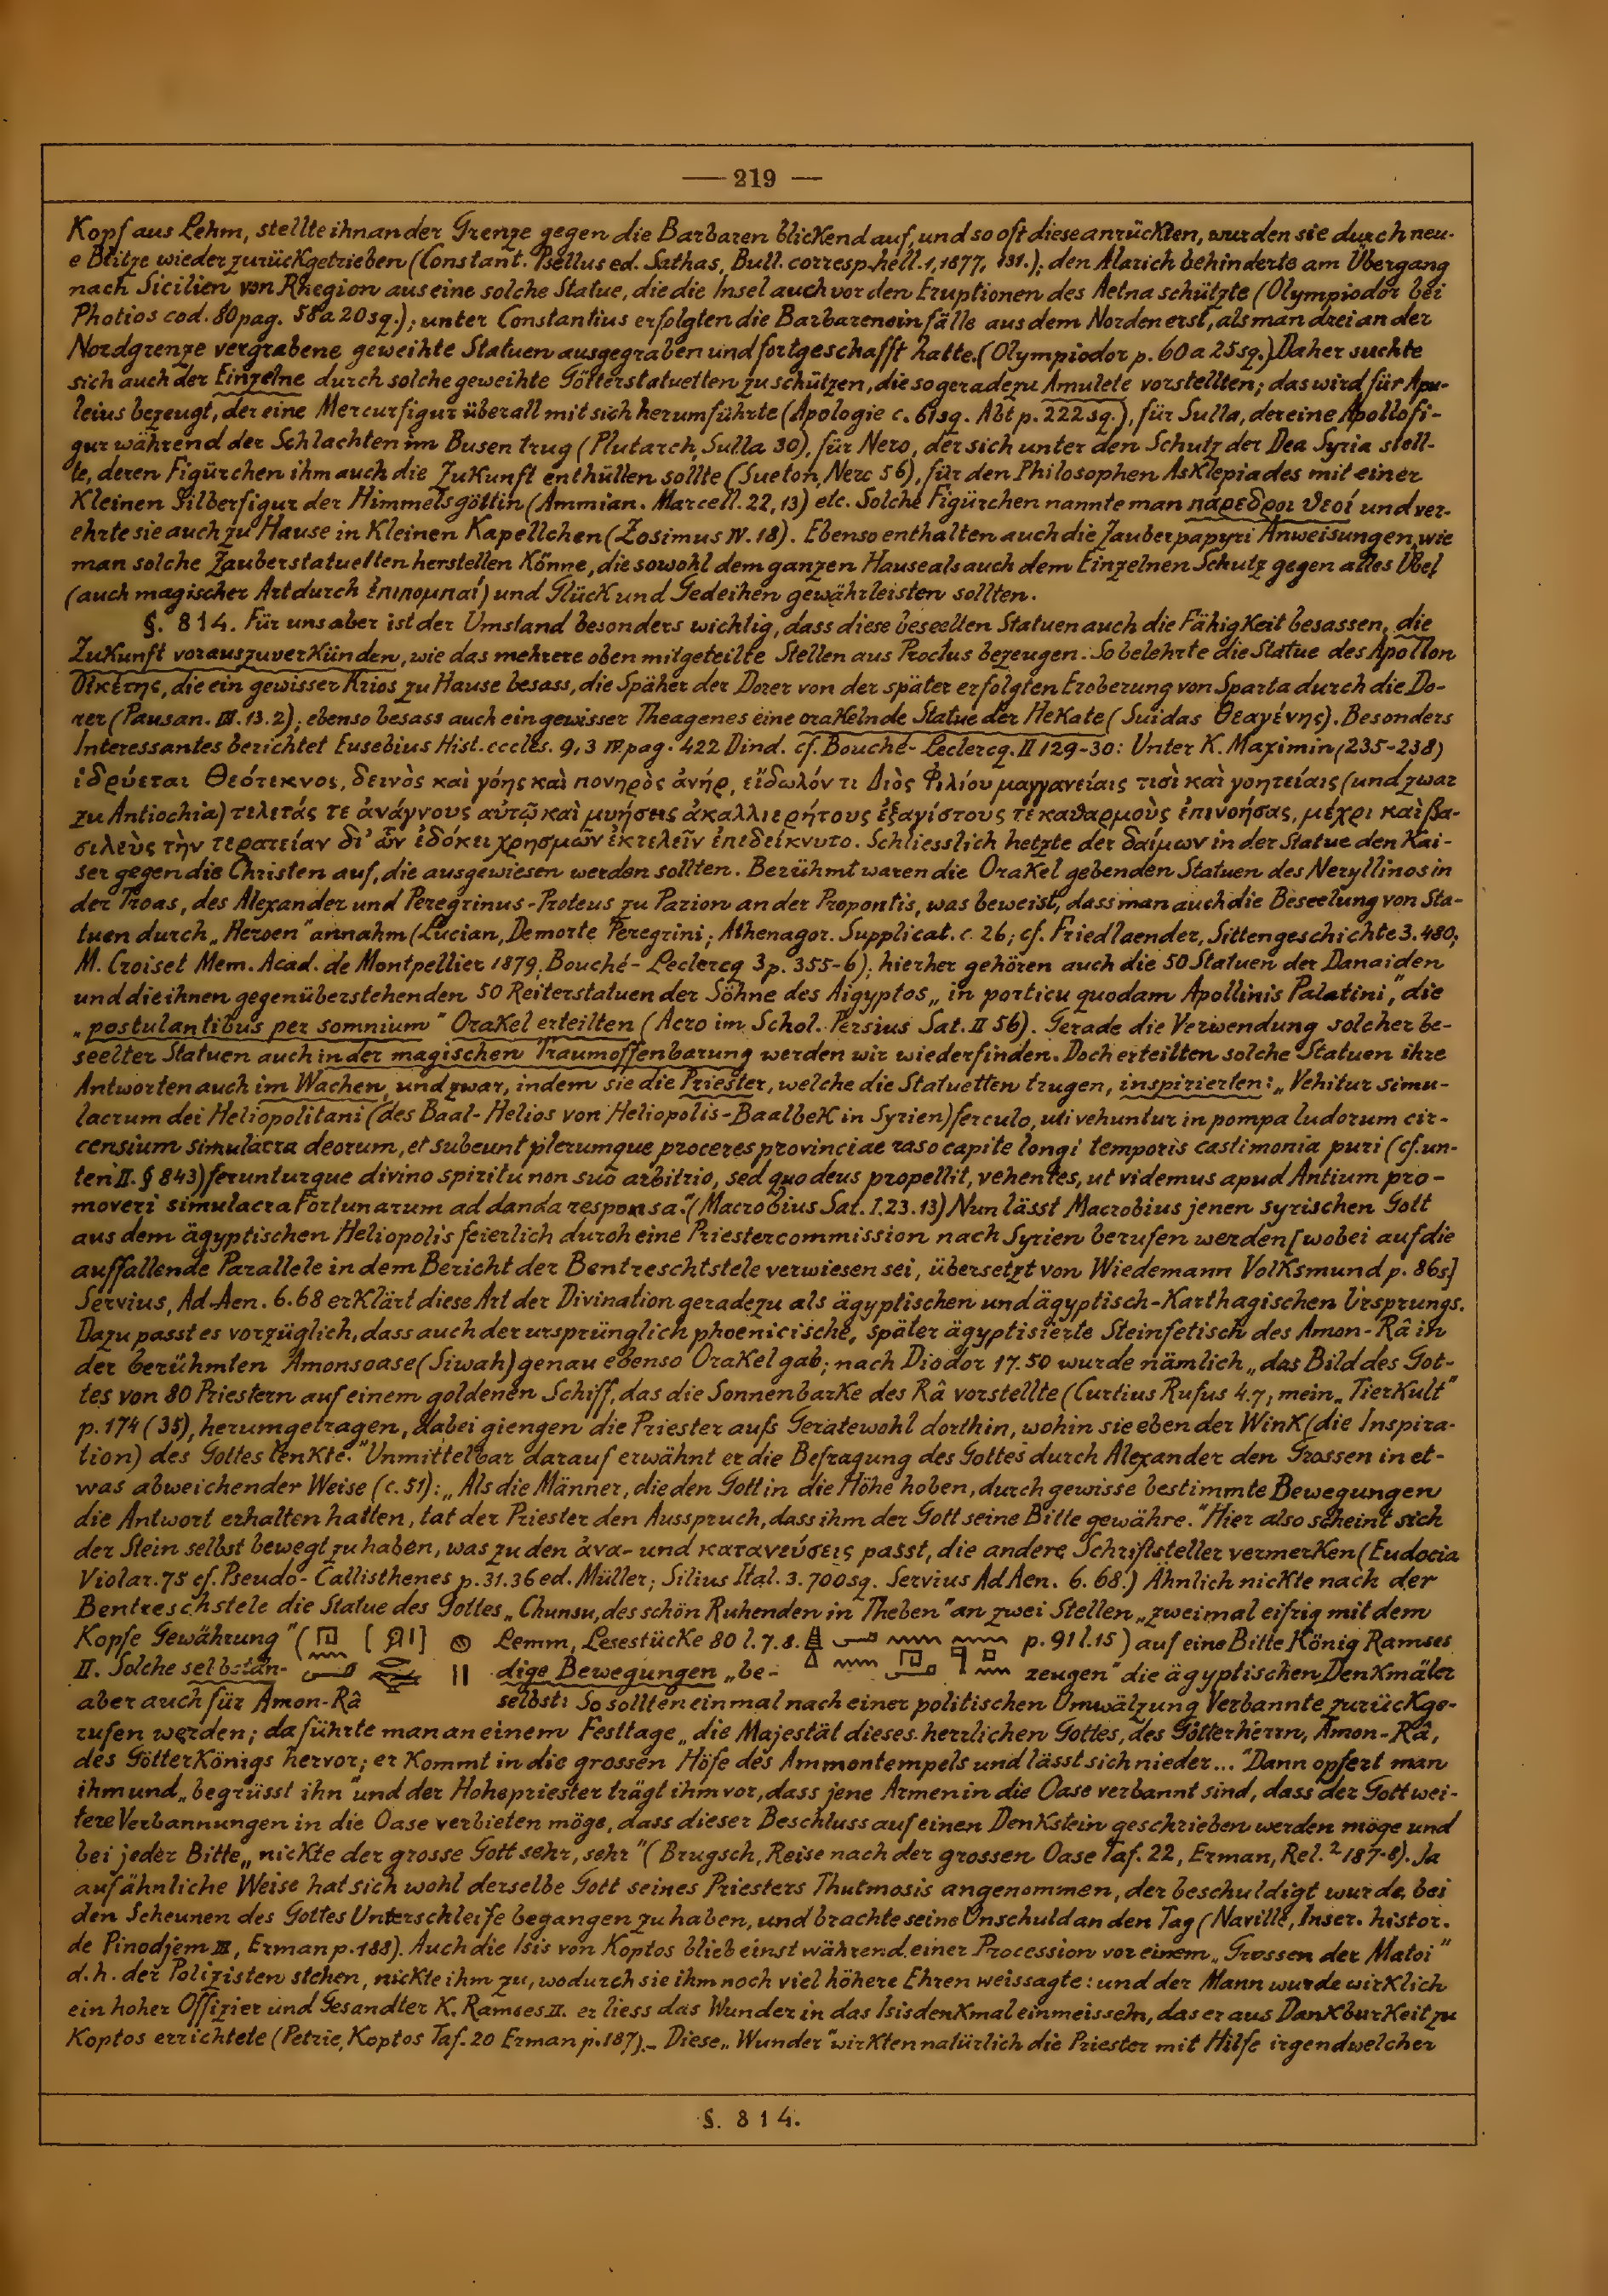 — 219 —
Kopf aus Lehm, stellte ihn an der Grenze gegen die Barbaren blickend auf, und so oft diese anrückten, wurden sie durch neu-
e Blitze wieder zurückgetrieben (Constant. Psellus ed. Sathas, Bull. corresp. hell. 1, 1877, 131.); den Alarich behinderte am Übergang
nach Sicilien von Rhegion aus eine solche Statue, die die Insel auch vor den Eruptionen des Aetna schützte (Olympiodor bei
Photios cod. 80 pag. 58a 20 sq.); unter Constantius erfolgten die Barbareneinfälle aus dem Norden erst, als man drei an der
Nordgrenze vergrabene geweihte Statuen ausgegraben und fortgeschafft hatte. (Olympiodor p. 60 a 25 sq.) Daher suchte
sich auch der Einzelne durch solche geweihte Götterstatuetten zu schützen, die so geradezu Amulete vorstellten; das wird für Apu-
leius bezeugt, der eine Mercurfigur überall mit sich herumführte (Apologie c. 61 sq. Abt p. 222 sq.), für Sulla, der eine Apollofi-
gur während der Schlachten im Busen trug (Plutarch, Sulla 30), für Nero, der sich unter den Schutz der Dea Syria stell-
te, deren Figürchen ihm auch die Zukunft enthüllen sollte (Sueton, Nero 56), für den Philosophen Asklepiades mit einer
kleinen Silberfigur der Himmelsgöttin (Ammian. Marcell. 22, 13) etc. Solche Figürchen nannte man πάρεδροι θεοί und ver-
ehrte sie auch zu Hause in kleinen Kapellchen (Zosimus IV. 18). Ebenso enthalten auch die Zauberpapyri Anweisungen, wie
man solche Zauberstatuetten herstellen könne, die sowohl dem ganzen Hause als auch dem Einzelnen Schutz gegen alles Übel
(auch magischer Art durch ἐπιπομπαί) und Glück und Gedeihen gewährleisten sollten.
§. 814. Für uns aber ist der Umstand besonders wichtig, dass diese beseelten Statuen auch die Fähigkeit besassen, die
Zukunft vorauszuverkünden, wie das mehrere oben mitgeteilte Stellen aus Proclus bezeugen. So belehrte die Statue des Apollon
Οἰκέτης, die ein gewisser Krios zu Hause besass, die Späher der Dorer von der später erfolgten Eroberung von Sparta durch die Do-
rer (Pausan. III. 13. 2); ebenso besass auch ein gewisser Theagenes eine orakelnde Statue der Hekate (Suidas Θεαγένης). Besonders
Interessantes berichtet Eusebius Hist. eccles. 9, 3 IV pag. 422 Dind. cf. Bouché-Leclercq. II 129-30: Unter K. Maximin (235-238)
ἱδρύεται Θεότεκνος, δεινὸς καὶ γόης καὶ πονηρὸς ἀνήρ, εἴδωλόν τι Διὸς Φιλίου μαγγανείαις τισὶ καὶ γοητείαις (und zwar
zu Antiochia) τελετάς τε ἀνάγνους αὐτῷ καὶ μυήσεις ἀκαλλιερήτους ἐξαγίστους τε καθαρμοὺς ἐπινοήσας, μέχρι καὶ βα-
σιλεὺς τὴν τερατείαν δι' ὧν ἐδόκει χρησμῶν ἐκτελεῖν ἐπεδείκνυτο. Schliesslich hetzte der δαίμων in der Statue den Kai-
ser gegen die Christen auf, die ausgewiesen werden sollten. Berühmt waren die Orakel gebenden Statuen des Neryllinos in
der Troas, des Alexander und Peregrinus-Proteus zu Parion an der Propontis, was beweist, dass man auch die Beseelung von Sta-
tuen durch „Heroen" annahm (Lucian, De morte Peregrini; Athenagor. Supplicat. c. 26; cf. Friedlaender, Sittengeschichte 3. 480;
M. Croiset Mem. Acad. de Montpellier 1879, Bouché-Leclercq 3 p. 355-6); hierher gehören auch die 50 Statuen der Danaiden
und die ihnen gegenüberstehenden 50 Reiterstatuen der Söhne des Aigyptos „in porticu quodam Apollinis Palatini," die
„postulantibus per somnium" Orakel erteilten (Acro im Schol. Persius Sat. II 56). Gerade die Verwendung solcher be-
seelter Statuen auch in der magischen Traumoffenbarung werden wir wiederfinden. Doch erteilten solche Statuen ihre
Antworten auch im Wachen, und zwar, indem sie die Priester, welche die Statuetten trugen, inspirierten: „Vehitur simu-
lacrum dei Heliopolitani (des Baal-Helios von Heliopolis-Baalbek in Syrien) ferculo, uti vehuntur in pompa ludorum cir-
censium simulacra deorum, et subeunt plerumque proceres provinciae raso capite longi temporis castimonia puri (cf. un-
ten II. § 843) ferunturque divino spiritu non suo arbitrio, sed quo deus propellit, vehentes, ut videmus apud Antium pro-
moveri simulacra Fortunarum ad danda responsa." (Macrobius Sat. I. 23. 13) Nun lässt Macrobius jenen syrischen Gott
aus dem ägyptischen Heliopolis feierlich durch eine Priestercommission nach Syrien berufen werden [wobei auf die
auffallende Parallele in dem Bericht der Bentreschtstele verwiesen sei, übersetzt von Wiedemann Volksmund p. 86s]
Servius, Ad. Aen. 6. 68 erklärt diese Art der Divination geradezu als ägyptischen und ägyptisch-karthagischen Ursprungs.
Dazu passt es vorzüglich, dass auch der ursprünglich phoenicische, später ägyptisierte Steinfetisch des Amon-Râ in
der berühmten Amonsoase (Siwah) genau ebenso Orakel gab; nach Diodor 17. 50 wurde nämlich „das Bild des Got-
tes von 80 Priestern auf einem goldenen Schiff, das die Sonnenbarke des Râ vorstellte (Curtius Rufus 4. 7; mein „Tierkult"
p. 174 (35), herumgetragen, dabei giengen die Priester aufs Geratewohl dorthin, wohin sie eben der Wink (die Inspira-
tion) des Gottes lenkte." Unmittelbar darauf erwähnt er die Befragung des Gottes durch Alexander den Grossen in et-
was abweichender Weise (c. 51): „Als die Männer, die den Gott in die Höhe hoben, durch gewisse bestimmte Bewegungen
die Antwort erhalten hatten, tat der Priester den Ausspruch, dass ihm der Gott seine Bitte gewähre." Hier also scheint sich
der Stein selbst bewegt zu haben, was zu den ἀνα- und κατανεύσεις passt, die andere Schriftsteller vermerken (Eudocia
Violar. 75 cf. Pseudo-Callisthenes p. 31. 36 ed. Müller; Silius Ital. 3. 700 sq. Servius Ad Aen. 6. 68.) Ähnlich nickte nach der
Bentreschstele die Statue des Gottes „Chunsu, des schön Ruhenden in Theben" an zwei Stellen „zweimal eifrig mit dem
Kopfe Gewährung" ( Lemm, Lesestücke 80 l. 7. 8. p. 91 l. 15) auf eine Bitte König Ramses
II. Solche selbstän- dige Bewegungen „be- zeugen" die ägyptischen Denkmäler
aber auch für Amon-Râ selbst: So sollten einmal nach einer politischen Umwälzung Verbannte zurückge-
rufen werden; da führte man an einem Festtage „die Majestät dieses herrlichen Gottes, des Götterherrn, Amon-Râ,
des Götterkönigs hervor; er kommt in die grossen Höfe des Ammontempels und lässt sich nieder..." Dann opfert man
ihm und „begrüsst ihn" und der Hohepriester trägt ihm vor, dass jene Armen in die Oase verbannt sind, dass der Gott wei-
tere Verbannungen in die Oase verbieten möge, dass dieser Beschluss auf einen Denkstein geschrieben werden möge und
bei jeder Bitte „nickte der grosse Gott sehr, sehr" (Brugsch, Reise nach der grossen Oase Taf. 22, Erman, Rel.² 187-8). Ja
auf ähnliche Weise hat sich wohl derselbe Gott seines Priesters Thutmosis angenommen, der beschuldigt wurde, bei
den Scheunen des Gottes Unterschleife begangen zu haben, und brachte seine Unschuld an den Tag (Naville, Inscr. histor.
de Pinodjem III, Erman p. 188). Auch die Isis von Koptos blieb einst während einer Procession vor einem „Grossen der Matoi"
d. h. der Polizisten stehen, nickte ihm zu, wodurch sie ihm noch viel höhere Ehren weissagte: und der Mann wurde wirklich
ein hoher Offizier und Gesandter K. Ramses II. er liess das Wunder in das Isisdenkmal einmeisseln, das er aus Dankburkeit zu
Koptos errichtete (Petrie, Koptos Taf. 20 Erman p. 187).– Diese „Wunder" wirkten natürlich die Priester mit Hilfe irgendwelcher
§. 814.